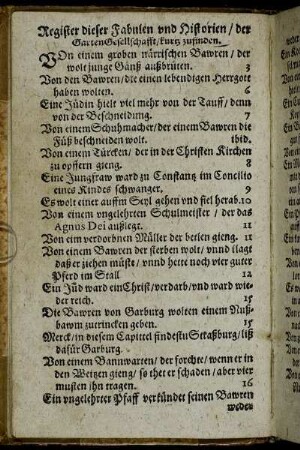 Register dieser Fabulen vnd Historien / der
GartenGesellschafft / kurtz zufinden.
VOn einem groben närrischen Bawren / der
wolt junge Gänß außbrüten. 3
Von den Bawren / die einen lebendigen Herrgott
haben wolten. 6
Eine Jüdin hielt viel mehr von der Tauff / denn
von der Beschneidung. 7
Von einem Schuhmacher / der einem Bawren die
Füß beschneiden wolt. ibid.
Von einem Türcken / der in der Christen Kirchen
zu opffern gieng. 8
Eine Jungfraw ward zu Constantz im Concilio
eines Kindes schwanger. 9
Es wolt einer auffm Seyl gehen vnd fiel herab. 10
Von einem vngelehrten Schulmeister / der das
Agnus Dei außlegt. 11
Von eim verdorbnen Müller der betlen gieng. 11
Von einem Bawren der sterben wolt / vnnd klagt
daß er ziehen müste / vnnd hette noch vier guter
Pferd im Stall 12
Ein Jüd ward ein Christ / verdarb / vnd ward wie-
der reich. 15
Die Bawren von Garburg wolten einem Nuß-
bawm zutrincken geben. 15
Merck / in diesem Capitel findestu Straßburg / liß
dafür Garburg.
Von einem Bannwarten / der forchte / wenn er in
den Weitzen gieng / so thet er schaden / aber vier
musten ihn tragen. 16
Ein vngelehrter Pfaff verkündet seinen Bawren
weder